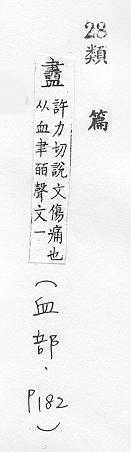 28
類篇
衋
許力切說文傷痛也
从血聿皕聲文一
（血部．
P182）